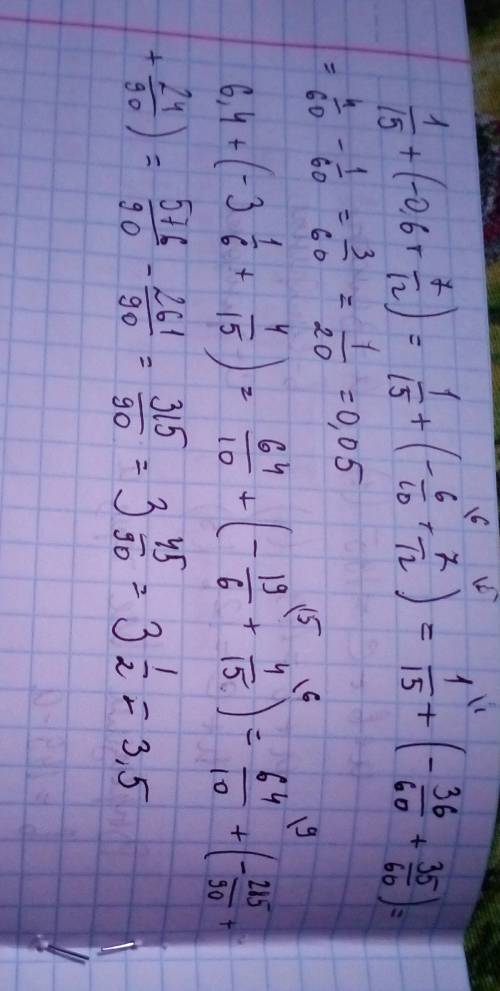 1/15 + (-0,6 + 7/12) = 1/15 + (-6/10 \6 + 7/12 \5) = 1/15 \4 + (-36/60 + 35/60) =
= 4/60 - 1/60 = 3/60 = 1/20 = 0,05
6,4 + (-3 1/6 + 4/15) = 64/10 + (-19/6 \15 + 4/15 \6) = 64/10 \9 + (-285/90 +
+ 24/90) = 576/90 - 261/90 = 315/90 = 3 45/90 = 3 1/2 = 3,5